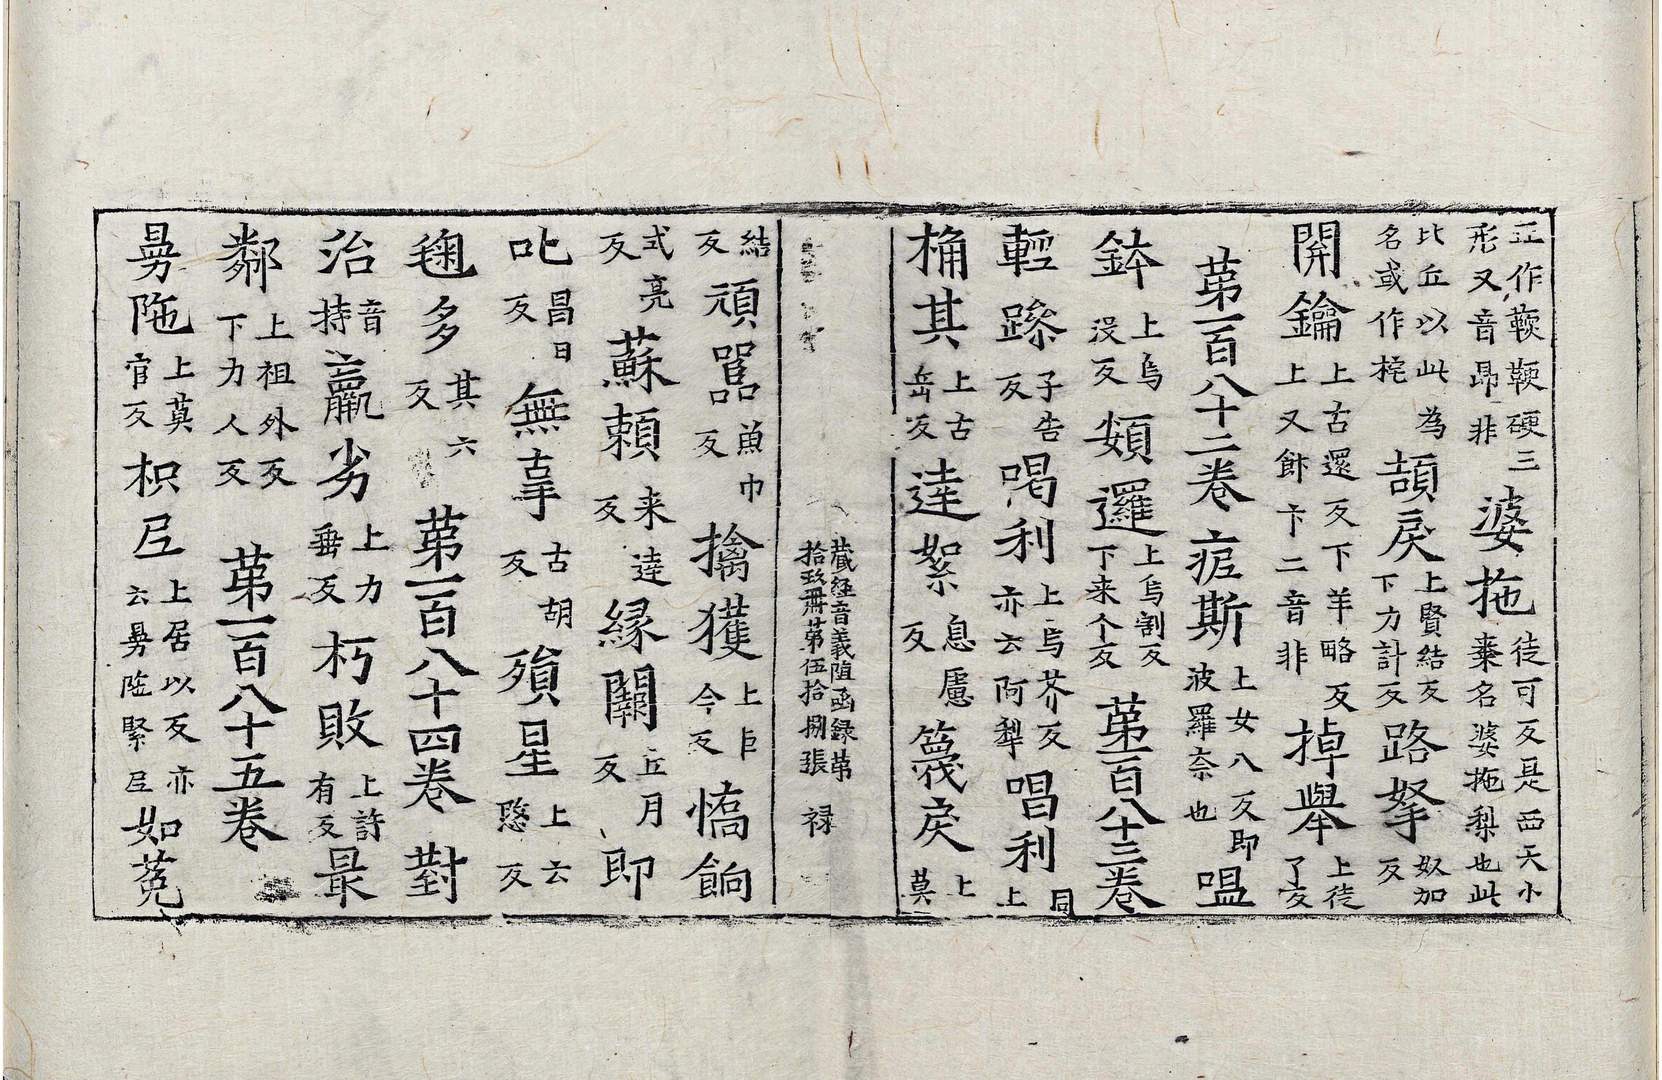 正作䩕鞕硬三形又音昂非婆拖徒可反是西天小棗名婆拖梨也此
比丘以此為名或作㧌頡戾上賢結反下力計反路拏奴加反
開鑰上古還反下羊略反上又餠卞二音非掉舉上徒了反
第一百八十二卷疷斯上女八反即波羅奈也嗢
鉢上烏没反頞邏上烏割反下来个反第一百八十三卷
輕躁子告反喝利上烏芥反亦云阿犁唱利同上
桷其上古岳反達絮息慮反篾戾上莫
藏經音義隨函録第拾玖冊第伍拾捌張 禄
結反頑嚚魚巾反擒獲上巨今反憍餉
式亮反蘇頼来達反緣闕丘月反即
叱昌日反無辜古胡反殞星上云愍反
毱多其六反第一百八十四卷對
治音持羸劣上力垂反朽敗上許有反最
鄰上祖外反下力人反第一百八十五卷
㬅陁上莫官反枳𡰱上居以反亦云㬅陁緊𡰱如菟